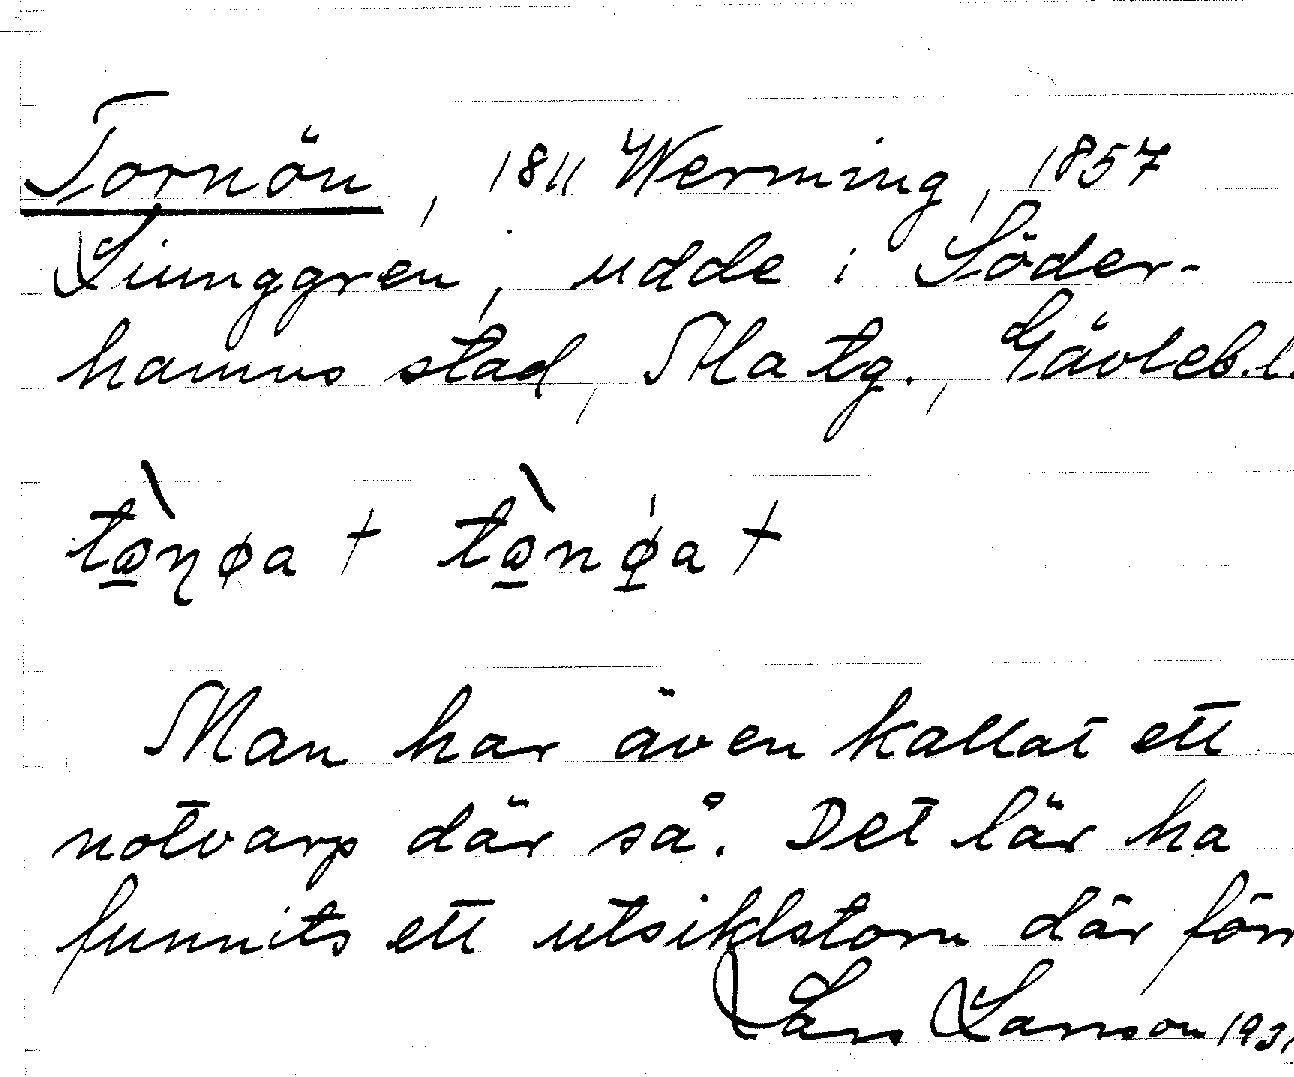 Tornön, 1811 Werming, 1857
Liunggren, udde i Söder-
hamns stad, Matg., Gävleb.l.
tò̱ŋøa + tò̱nǿ̱a +
Man har även kallat ett
notvarp där så. Det lär ha
funnits ett utsiktstorn där förr
Lars Larsson 193